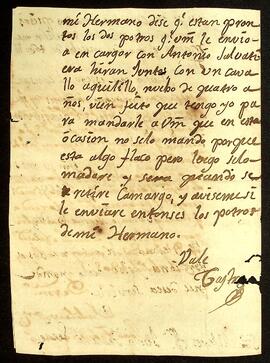 mi Hermano dise q.e estan pron
tos los dos potros q.e Vm le envio
a en cargor con Antonio Salvati
era hiran Juntos con un cava
llo aguilillo, nuebo de quatro a
ños, vien fecto que tengo yo pa
ra mandarle a Vm que en esta
ócasion no selo mando porque
esta algo flaco pero luego selo
madare y sera quando se
retire Camargo, y aviseme si
le enviare entonses los potros
de mi Hermano.
Vale